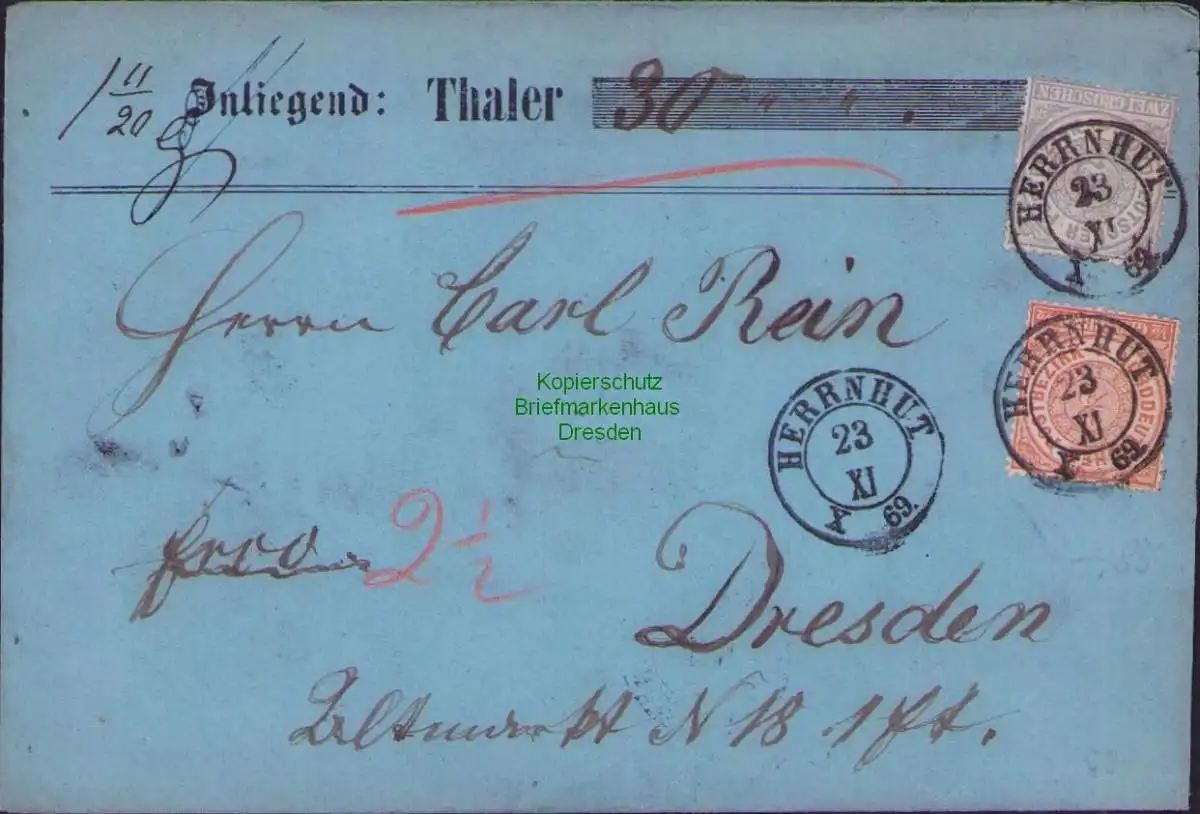 1 11/20
Inliegend: Thaler 30 " " .
ZWEI GROSCHEN
HERRNHUT
23
XI
A 69.
Herrn Carl Rein
HERRNHUT
23
XI
A 69.
Kopierschutz
Briefmarkenhaus
Dresden
HERRNHUT
23
XI
A 69.
frco 2 1/2
Dresden
Altmarkt N 18